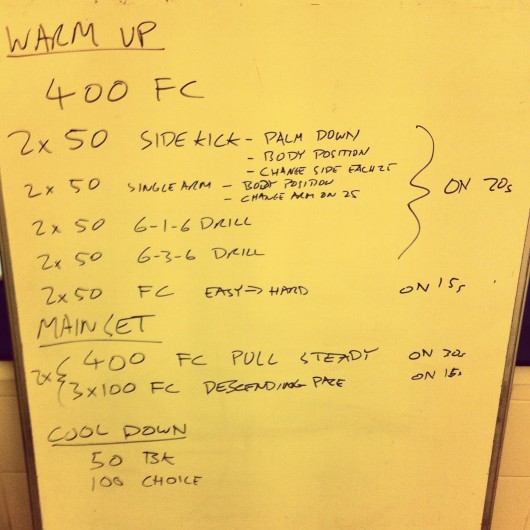 WARM UP
400 FC
2 x 50 SIDE KICK - PALM DOWN
- BODY POSITION
- CHANGE SIDE EACH 25
2 x 50 SINGLE ARM - BODY POSITION
- CHANGE ARM ON 25
ON 20s
2 x 50 6-1-6 DRILL
2 x 50 6-3-6 DRILL
2 x 50 FC EASY => HARD ON 15s
MAIN SET
2x { 400 FC PULL STEADY ON 30s
3 x 100 FC DESCENDING PACE ON 15s
COOL DOWN
50 BK
100 CHOICE